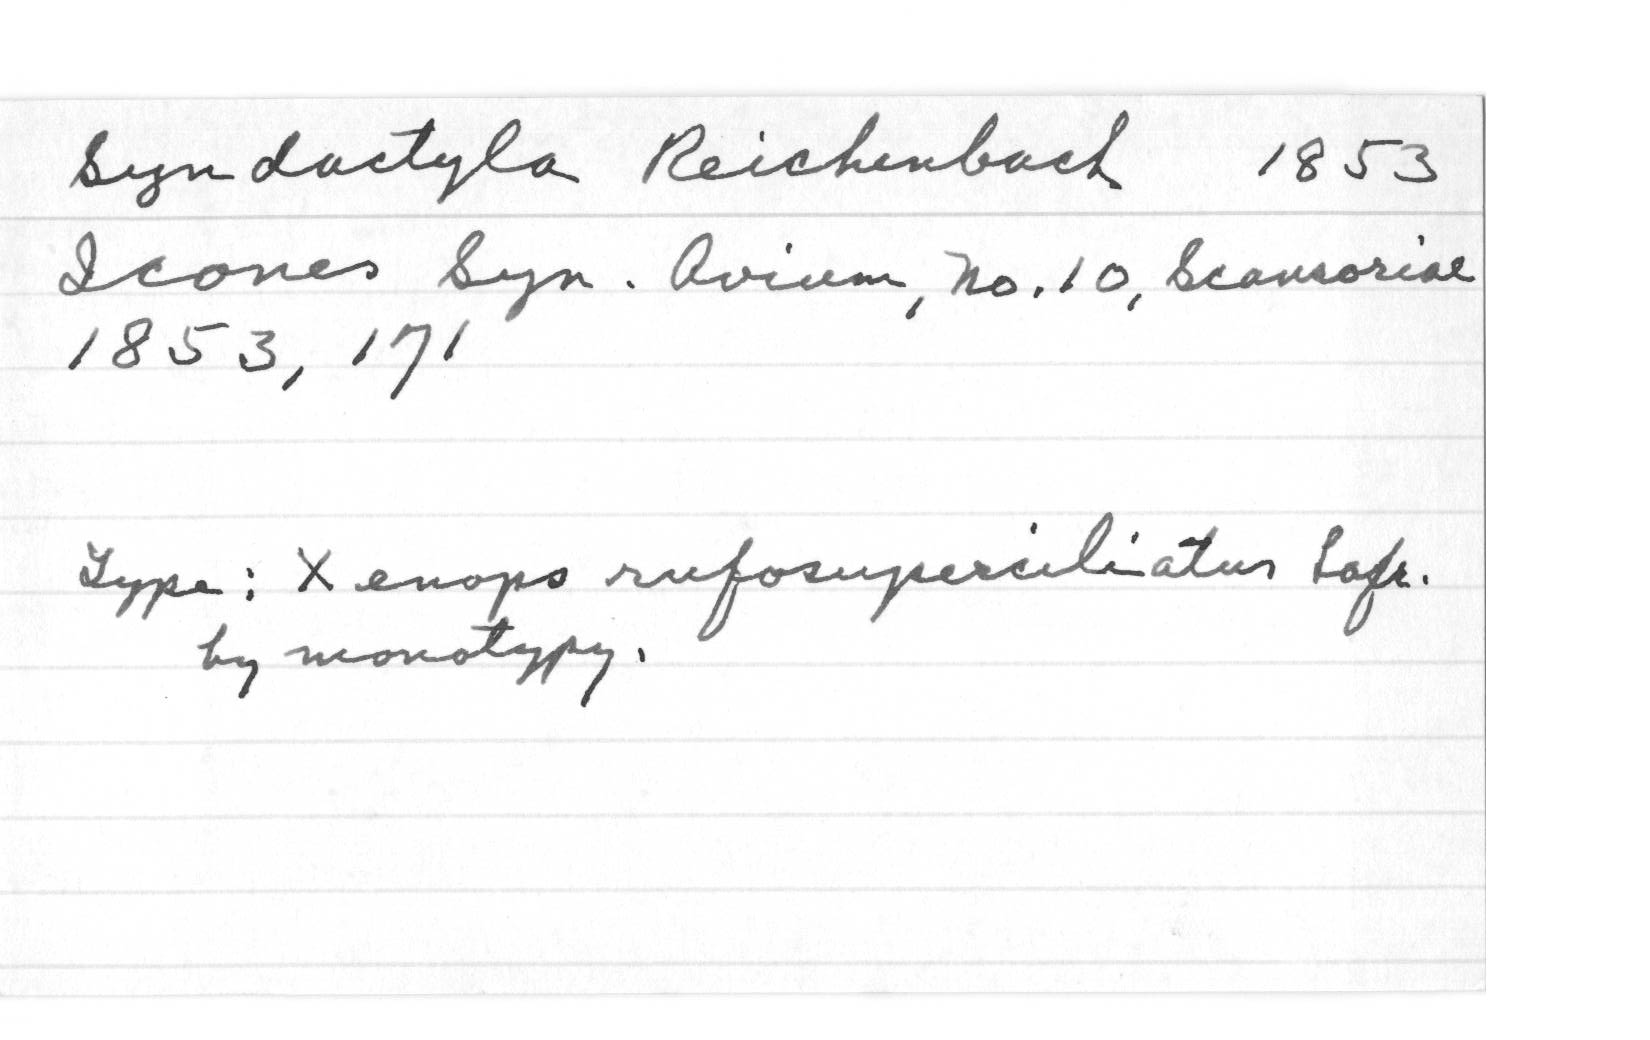 Syndactyla Reichenbach 1853
Icones Syn. Avium, No. 10, Scansoriae
1853, 171
Type: Xenops rufosuperciliatus Lafr.
by monotypy.